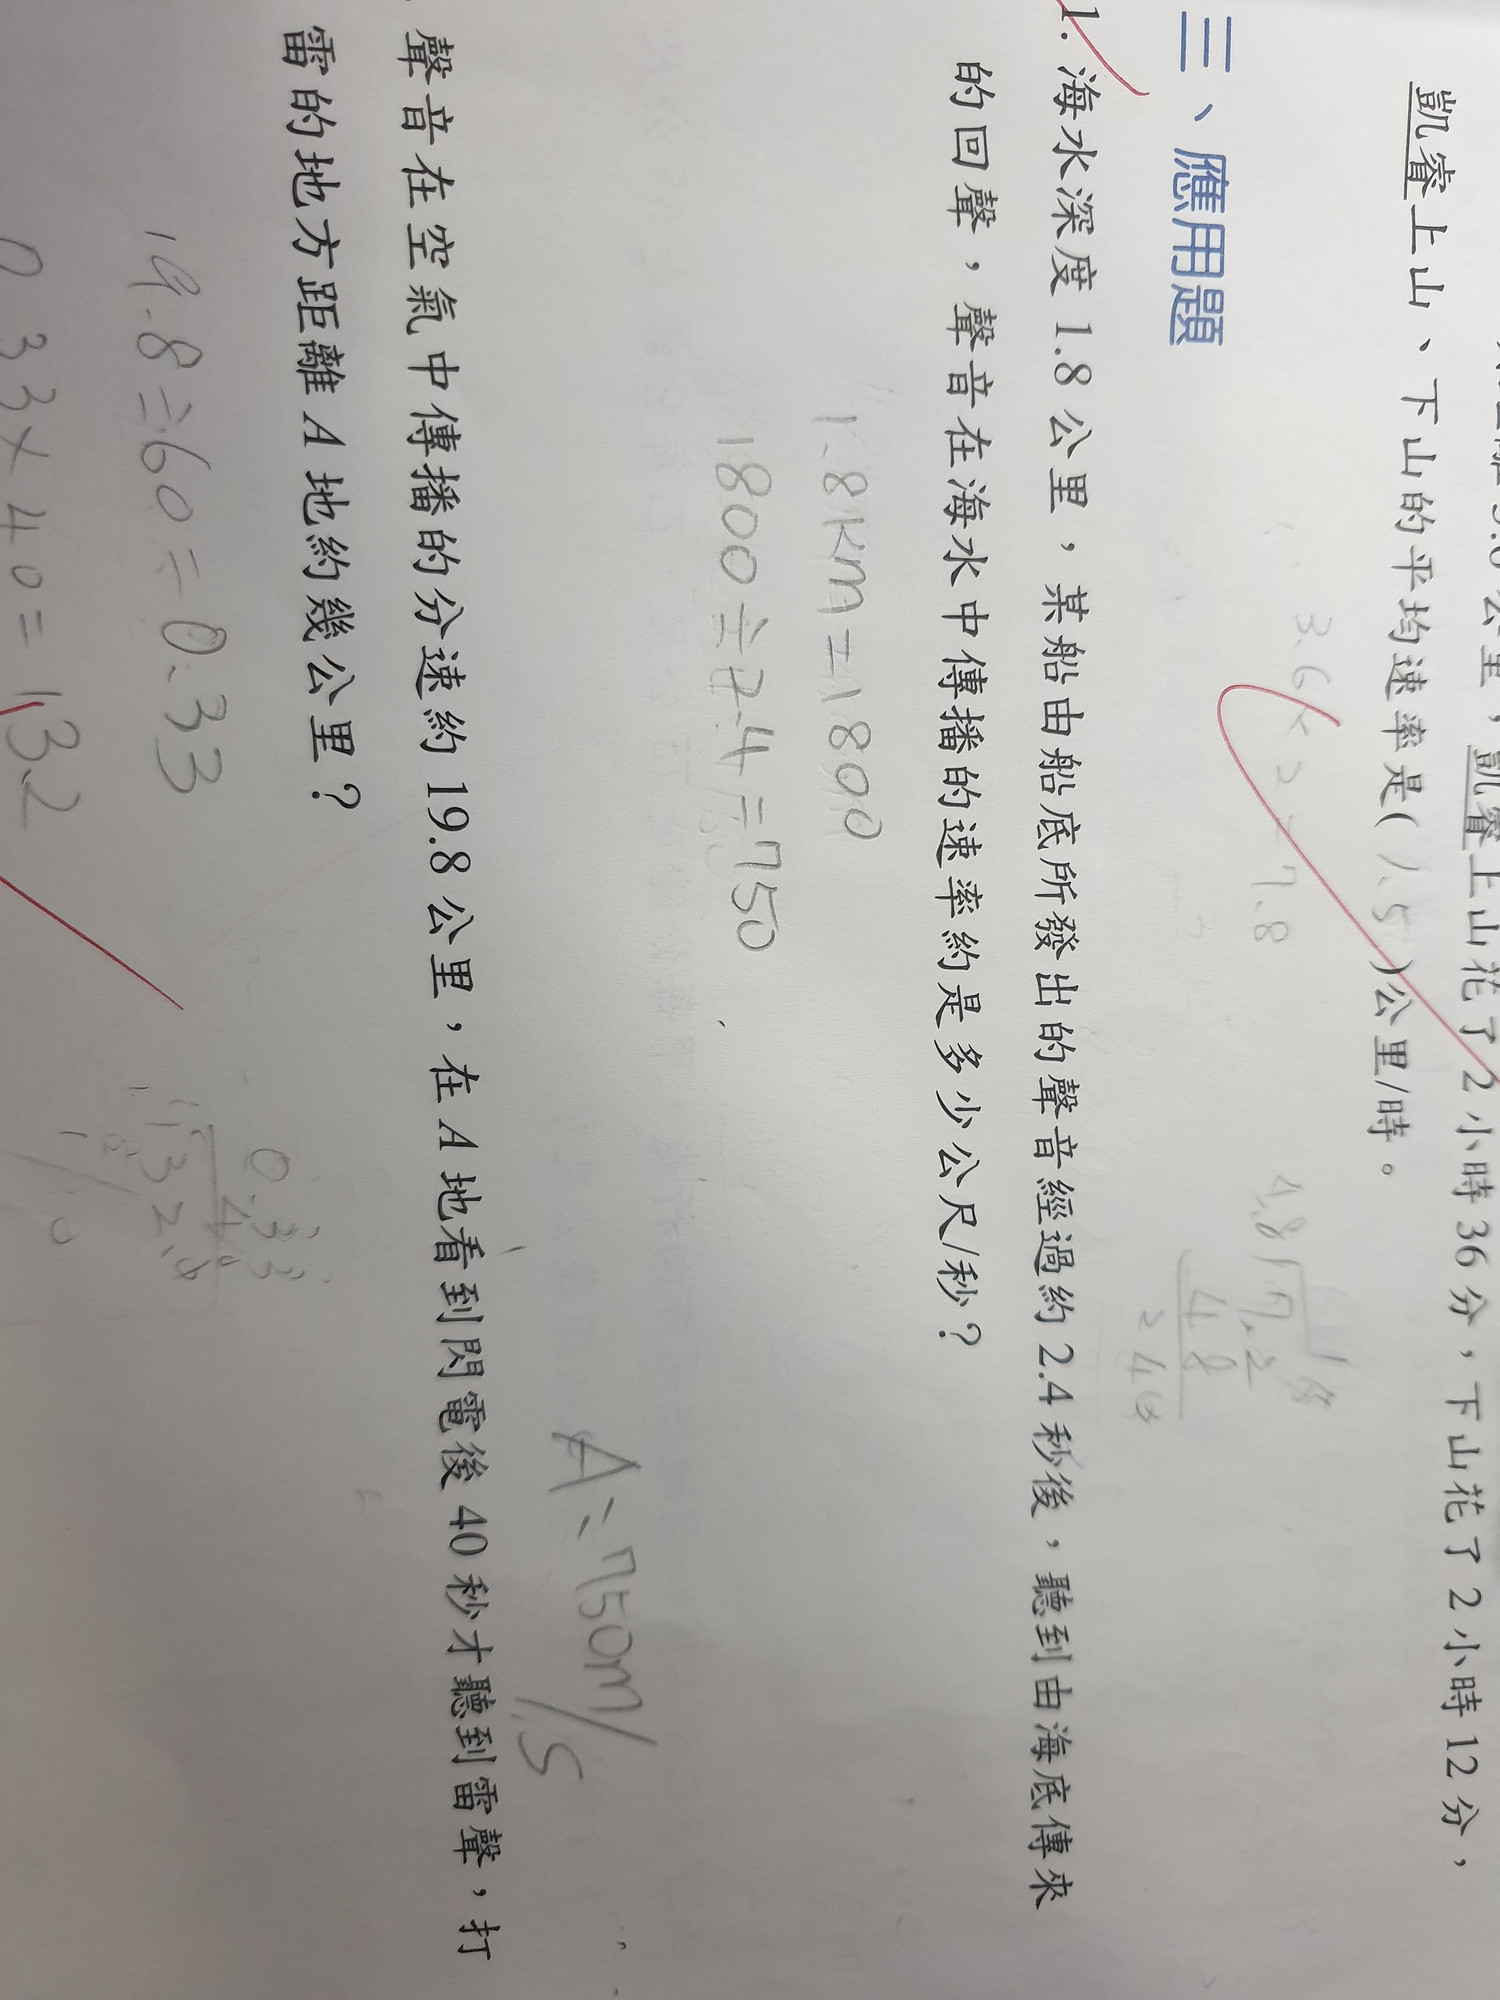 凱睿上山花了2小時36分，下山花了2小時12分，
凱睿上山、下山的平均速率是(1.5)公里/時。
3.6×2=7.8
三、應用題
1. 海水深度1.8公里，某船由船底所發出的聲音經過約2.4秒後，聽到由海底傳來
的回聲，聲音在海水中傳播的速率約是多少公尺/秒？
1.8km=1800
1800÷2.4=750
A:750m/s
聲音在空氣中傳播的分速約19.8公里，在A地看到閃電後40秒才聽到雷聲，打
雷的地方距離A地約幾公里？
19.8÷60=0.33
0.33×40=13.2